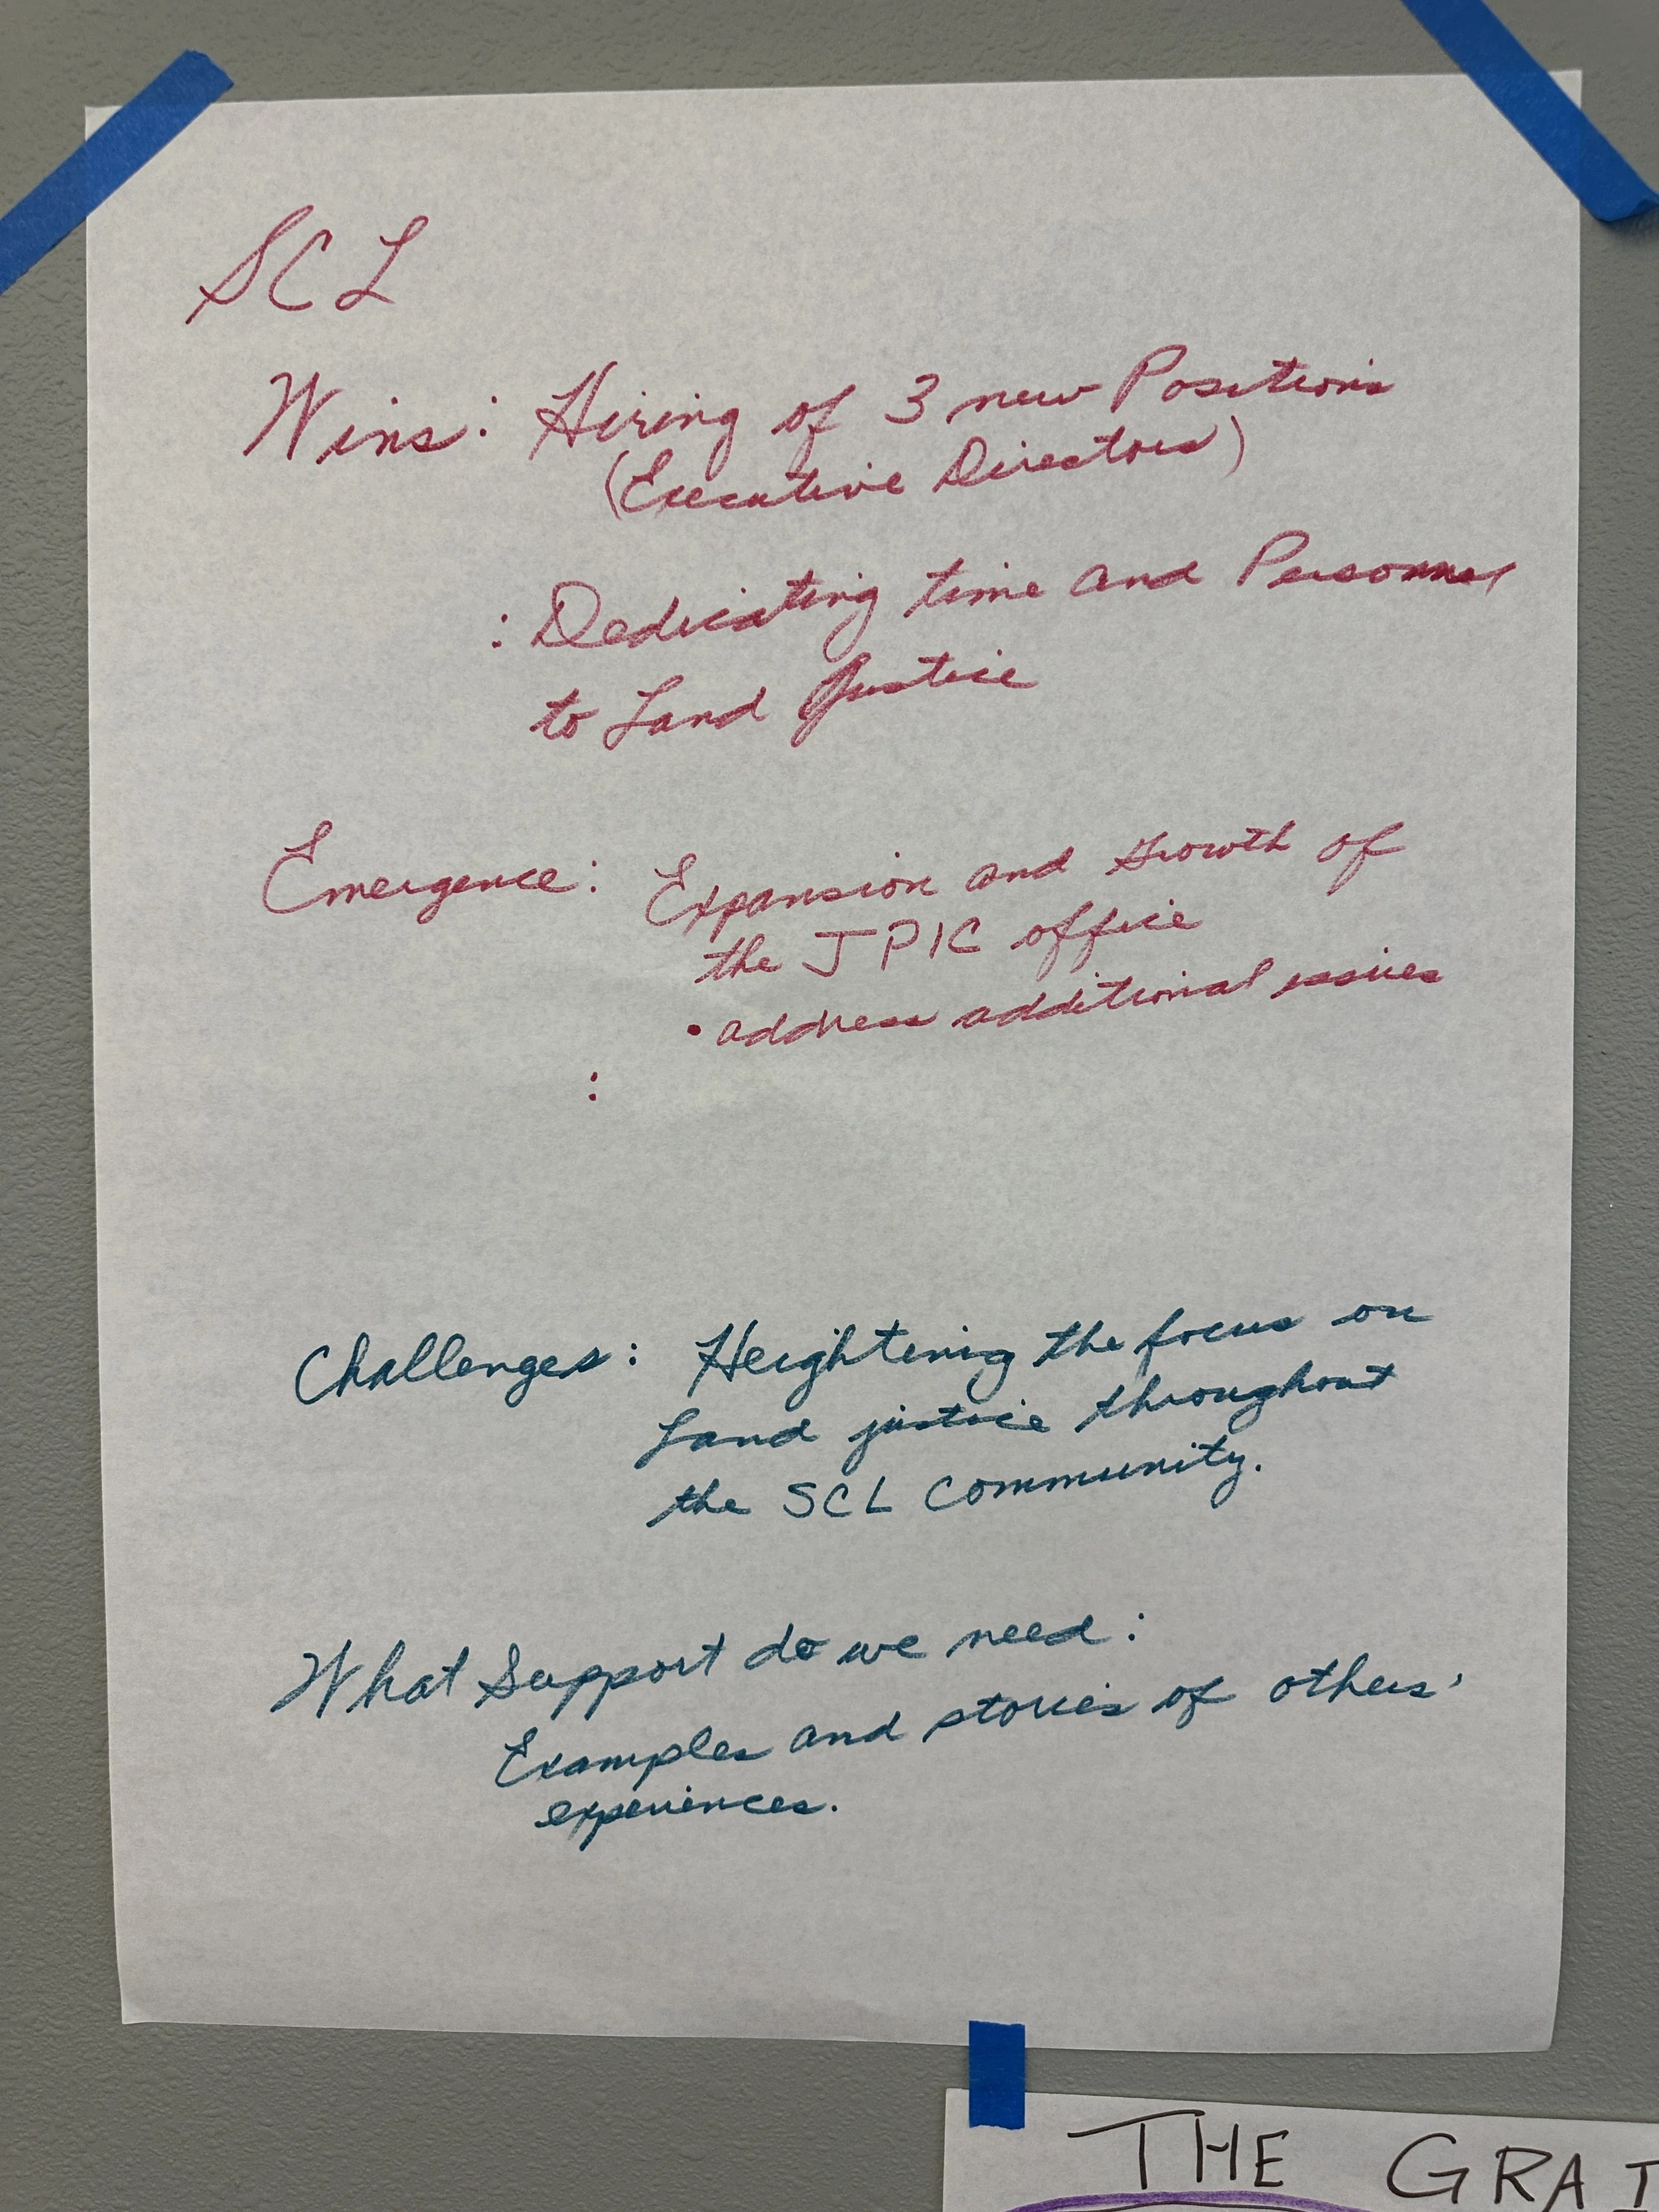 SCL
Wins: Hiring of 3 new Positions
(Executive Directors)
: Dedicating time and Personnel
to Land Justice
Emergence: Expansion and growth of
the JPIC office
• address additional issues
:
Challenges: Heightening the focus on
Land justice throughout
the SCL Community.
What Support do we need:
Examples and stories of others'
experiences.
THE GRAI